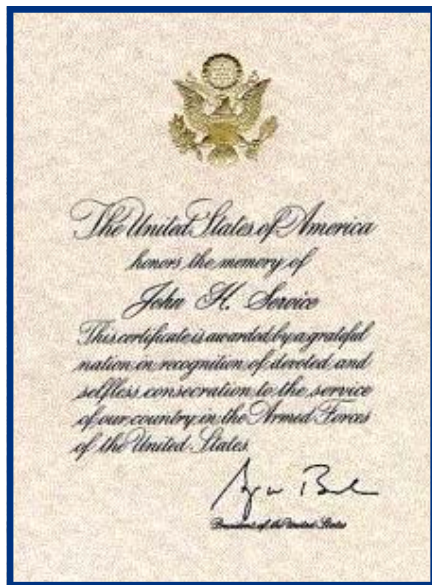 The United States of America
honors the memory of
John H. Service
This certificate is awarded by a grateful
nation in recognition of devoted and
selfless consecration to the service
of our country in the Armed Forces
of the United States
President of the United States